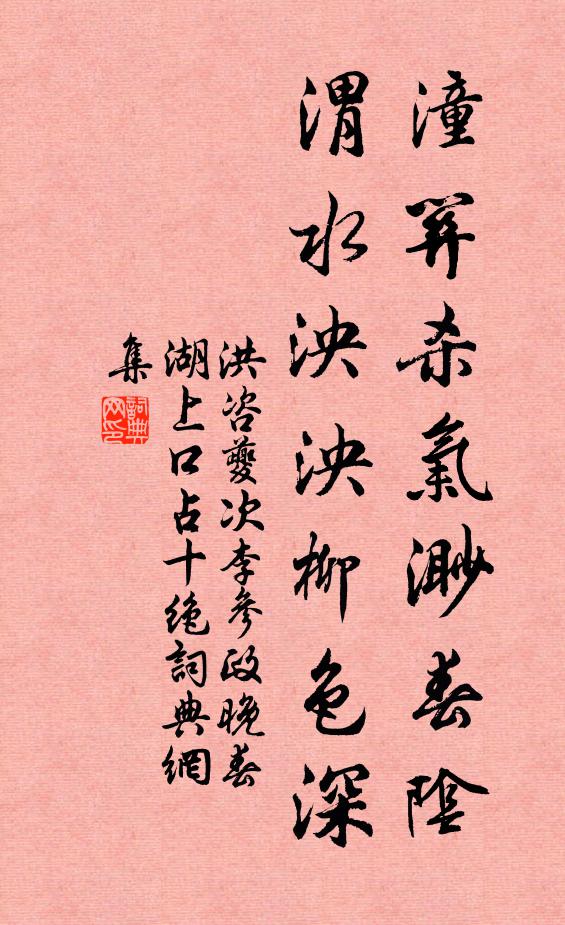 潼關殺氣渺春陰
渭水泱泱柳色深
洪咨夔次李參政晚春
湖上口占十絕詞典網
集
詞典網印